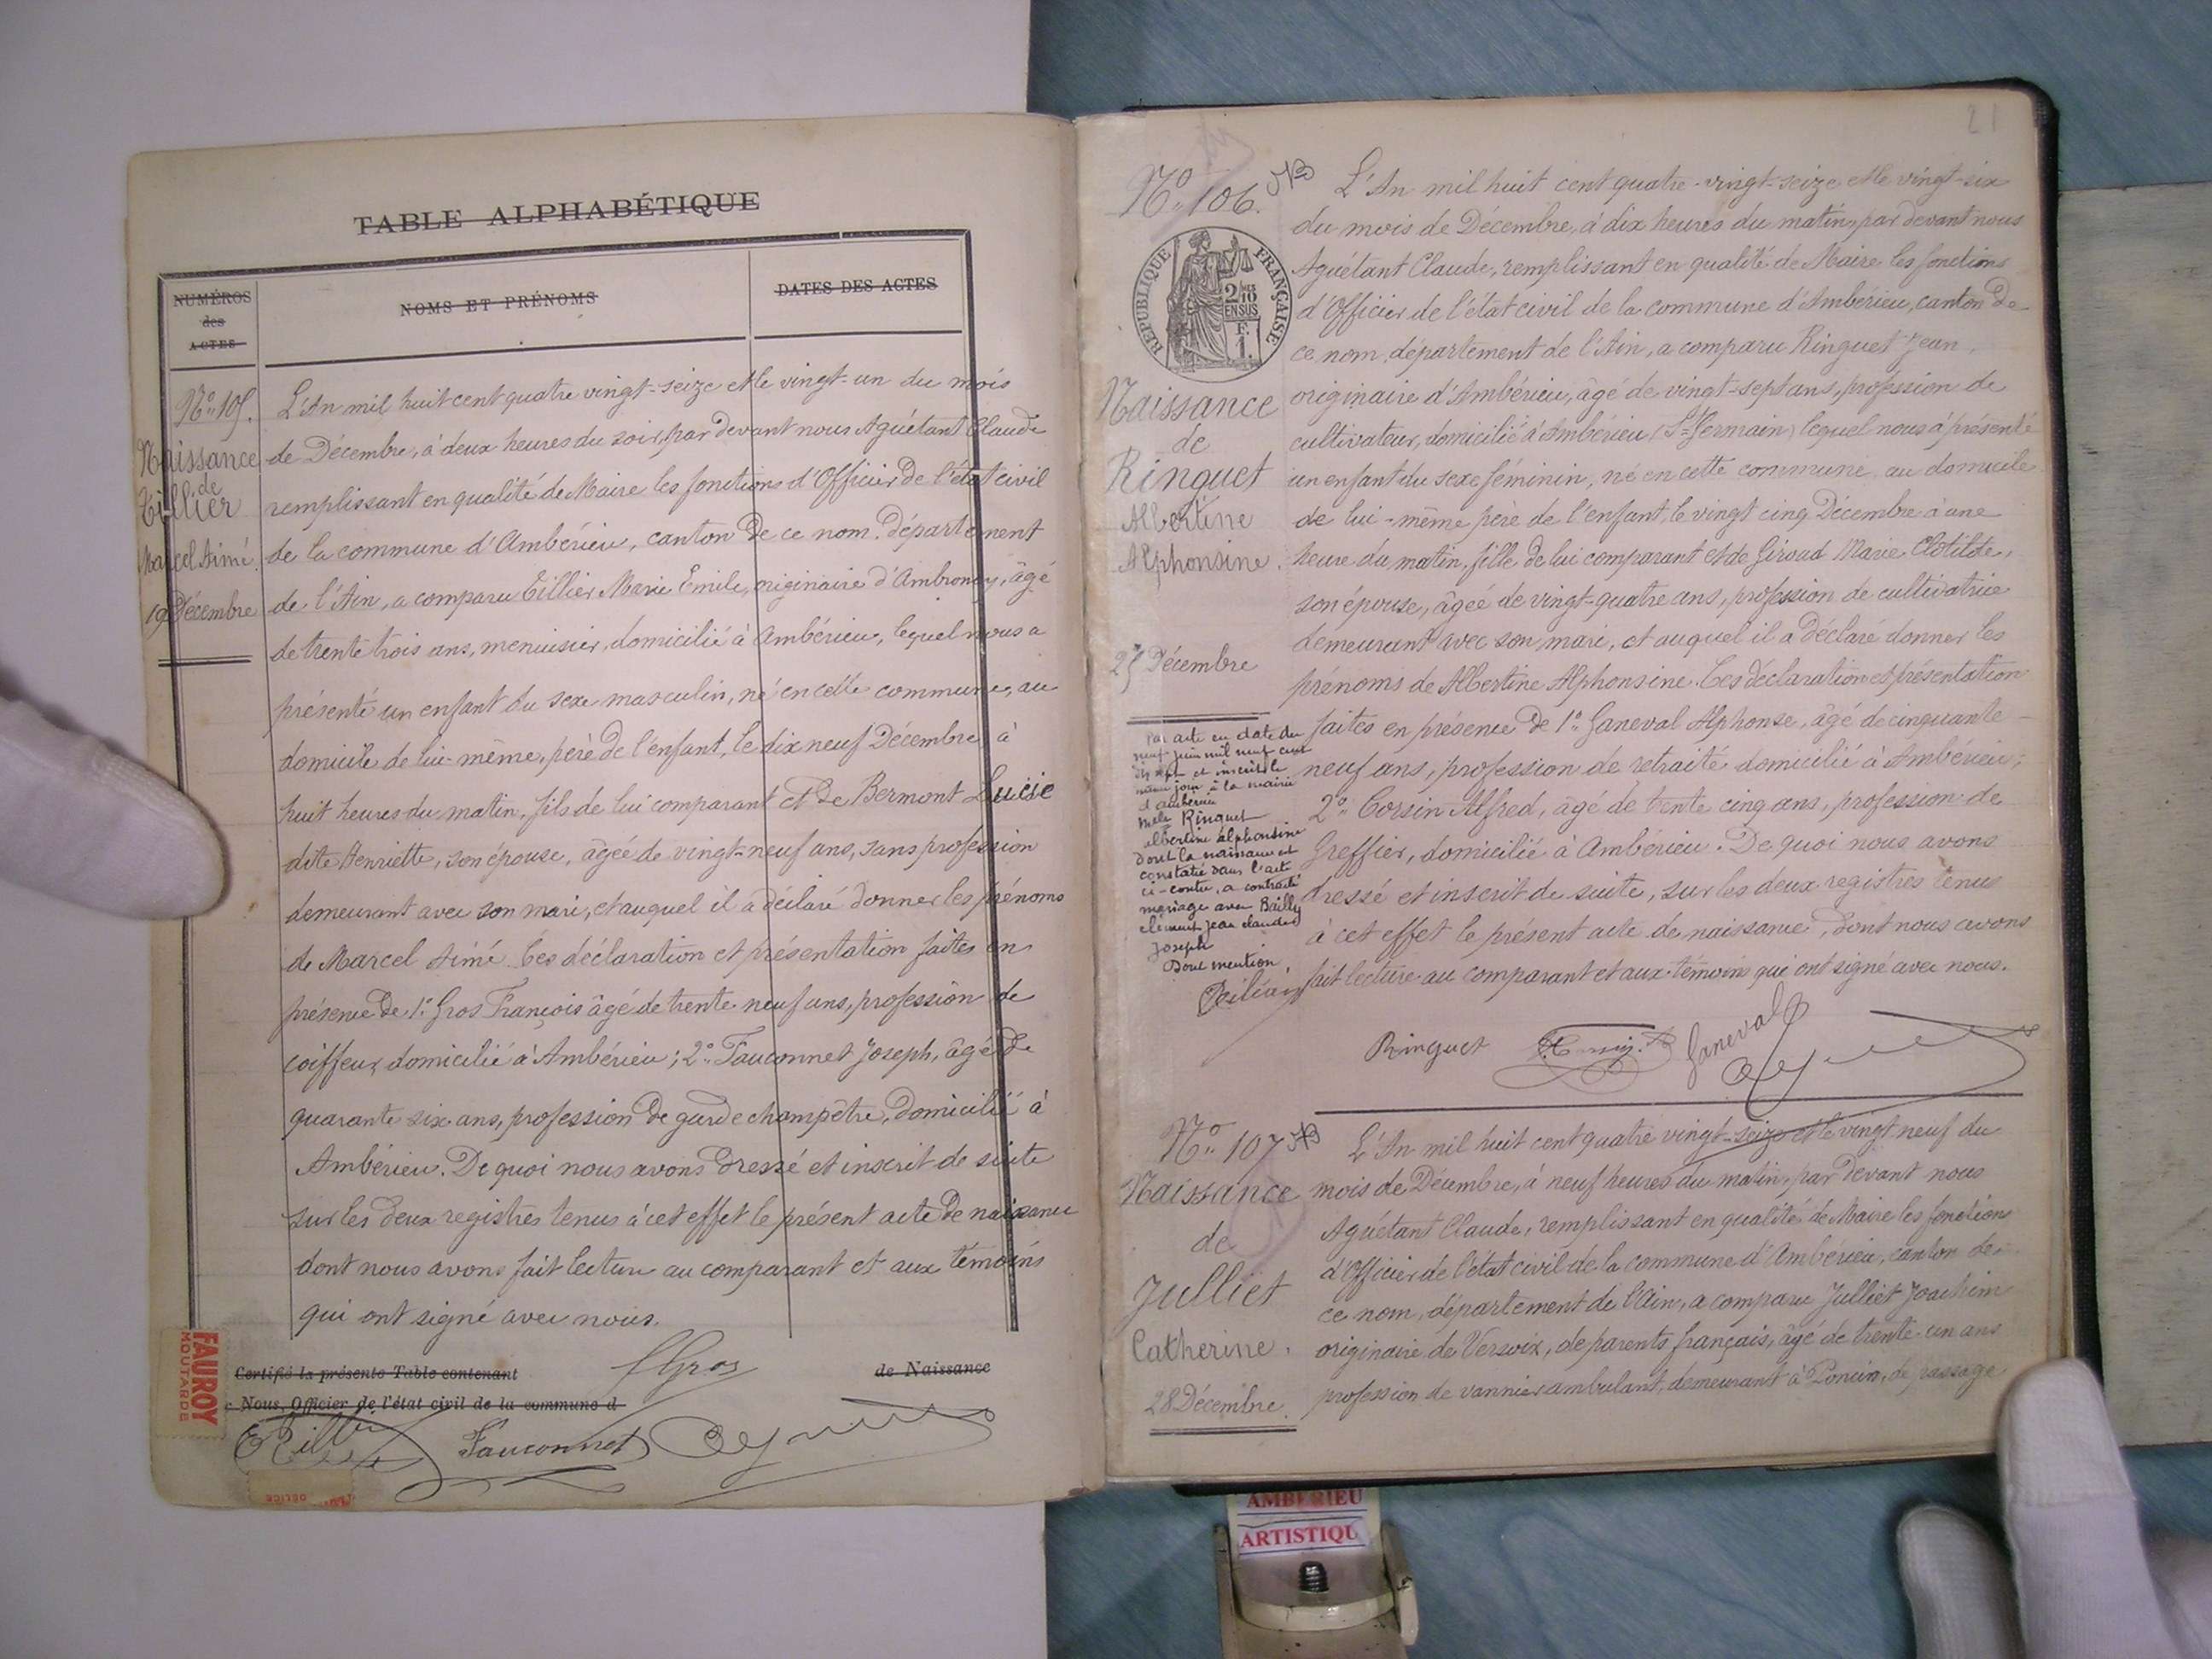 TABLE ALPHABÉTIQUE
NUMÉROS
des
ACTES
NOMS ET PRÉNOMS
DATES DES ACTES
N° 105.
Naissance
de
Tillier
Marcel Aimé.
19 Décembre
L'An mil huit cent quatre vingt-seize et le vingt-un du mois
de Décembre, à deux heures du soir, par devant nous Aguétant Claude
remplissant en qualité de Maire les fonctions d'Officier de l'état civil
de la commune d'Ambérieu, canton de ce nom. département
de l'Ain, a comparu Tillier Marie Emile, originaire d'Ambronay, âgé
de trente trois ans, menuisier, domicilié à Ambérieu, lequel nous a
présenté un enfant du sexe masculin, né en cette commune, au
domicile de lui-même, père de l'enfant, le dix neuf Décembre, à
huit heures du matin, fils de lui comparant et de Bermont Lucie
dite Henriette, son épouse, âgée de vingt-neuf ans, sans profession
demeurant avec son mari, et auquel il a déclaré donner les prénoms
de Marcel Aimé. Ces déclaration et présentation faites en
présence de 1° Gros François âgé de trente-neuf ans, profession de
coiffeur, domicilié à Ambérieu; 2° Fauconnet Joseph, âgé de
quarante six ans, profession de garde champêtre, domicilié à
Ambérieu. De quoi nous avons dressé et inscrit de suite
sur les deux registres tenus à cet effet le présent acte de naissance
dont nous avons fait lecture au comparant et aux témoins
qui ont signé avec nous.
Certifié la présente Table contenant
de Naissance
Nous, Officier de l'état civil de la commune d
FGros
Fauconnet
FAUROY
MOUTARDE
DELICE
21
N° 106.
RÉPUBLIQUE FRANÇAISE
2/10
EN SUS
F.
1.
Naissance
de
Ringuet
Albertine
Alphonsine.
25 Décembre
L'An mil huit cent quatre-vingt-seize et le vingt-six
du mois de Décembre, à dix heures du matin, par devant nous
Aguétant Claude, remplissant en qualité de Maire les fonctions
d'Officier de l'état civil de la commune d'Ambérieu, canton de
ce nom, département de l'Ain, a comparu Ringuet Jean,
originaire d'Ambérieu, âgé de vingt-sept ans, profession de
cultivateur, domicilié à Ambérieu (St Germain) lequel nous a présenté
un enfant du sexe féminin, né en cette commune au domicile
de lui-même père de l'enfant, le vingt cinq Décembre à une
heure du matin, fille de lui comparant et de Giroud Marie Clotilde,
son épouse, âgée de vingt-quatre ans, profession de cultivatrice
demeurant avec son mari, et auquel il a déclaré donner les
prénoms de Albertine Alphonsine. Ces déclaration et présentation
faites en présence de 1° Ganeval Alphonse, âgé de cinquante
neuf ans, profession de retraité domicilié à Ambérieu;
2° Corsin Alfred, âgé de trente cinq ans, profession de
Greffier, domicilié à Ambérieu. De quoi nous avons
dressé et inscrit de suite, sur les deux registres tenus
à cet effet le présent acte de naissance, dont nous avons
fait lecture au comparant et aux témoins qui ont signé avec nous.
Par acte en date du
neuf juin mil neuf cent
dix sept et inscrit le
même jour à la mairie
d'Ambérieu
Melle Ringuet
albertine alphonsine
dont la naissance est
constatée dans l'acte
ci-contre, a contracté
mariage avec Bailly
clément jean claude
Joseph
Dont mention,
Ringuet
Ganeval
N° 107
Naissance
de
Julliet
Catherine.
28 Décembre.
L'An mil huit cent quatre vingt-seize et le vingt neuf du
mois de Décembre, à neuf heures du matin, par devant nous
Aguétant Claude, remplissant en qualité de Maire les fonctions
d'Officier de l'état civil de la commune d'Ambérieu, canton de
ce nom, département de l'Ain, a comparu Julliet Joachim
originaire de Versoix, de parents français, âgé de trente-un ans
profession de vannier ambulant, demeurant à Poncin, de passage
AMBERIEU
ARTISTIQU